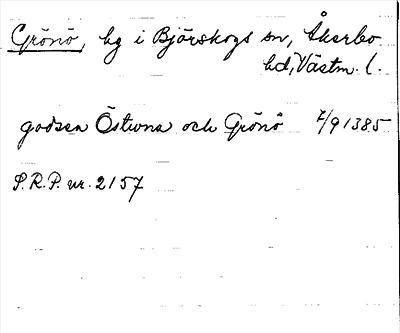 Grönö, hg i Björskogs sn, Åkerbo
hd, Västm. l.
godsen Östuna och Grönö 7/9 1385
S.R.P. nr. 2157